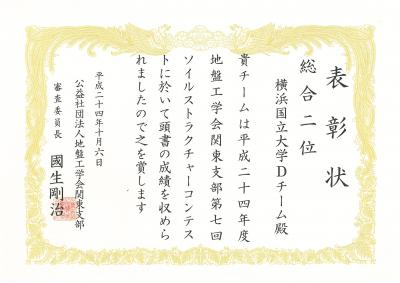 表彰状
総合二位
横浜国立大学Dチーム殿
貴チームは平成二十四年度
地盤工学会関東支部第七回
ソイルストラクチャーコンテス
トに於いて頭書の成績を収めら
れましたので之を賞します
平成二十四年十月六日
公益社団法人地盤工学会関東支部
審査委員長 國生剛治